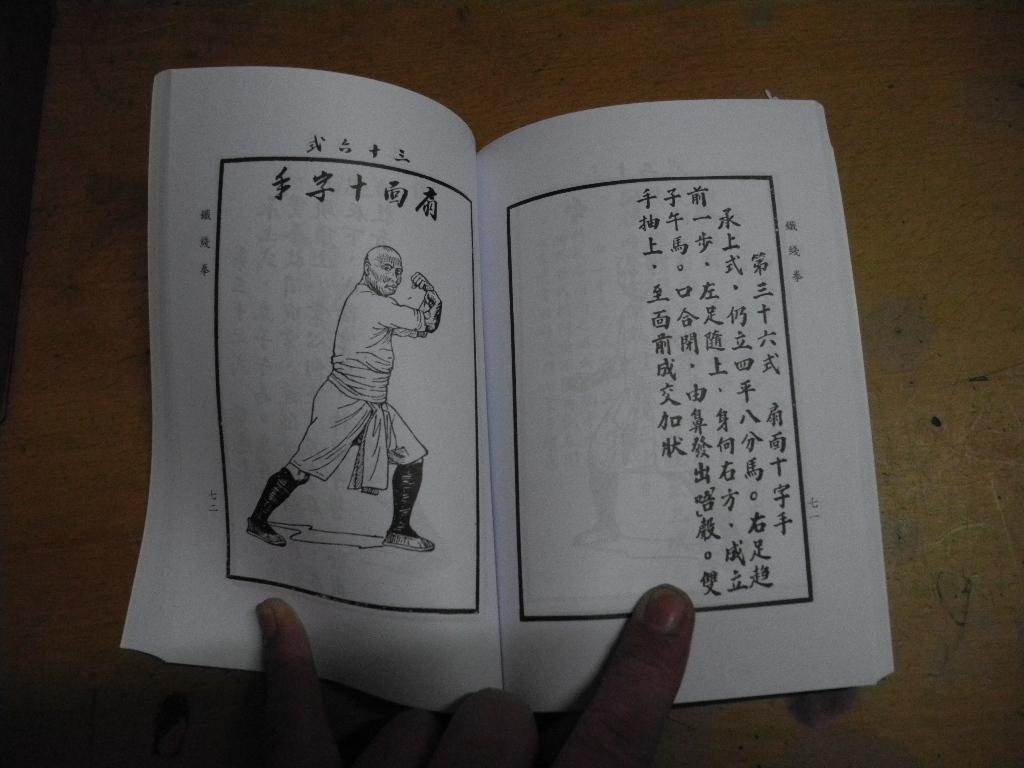 鐵綫拳
第三十六式　扇面十字手
承上式，仍立四平八分馬。右足趋
前一步，左足隨上，身向右方，成立
子午馬。口合閉，由鼻發出唔聲。雙
手抽上，至面前成交加狀
七一
三十六式
扇面十字手
鐵綫拳
七二